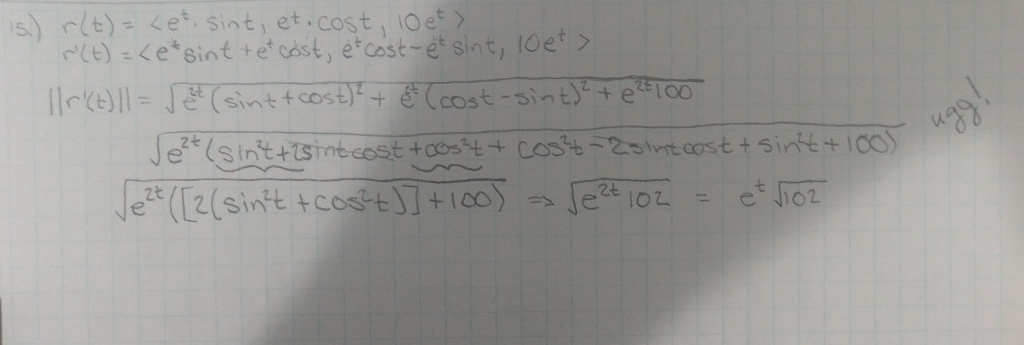 15.) r(t) = <eᵗ · sint, eᵗ · cost, 10eᵗ>
r'(t) = <eᵗ sint + eᵗ cost, eᵗcost - eᵗ sint, 10eᵗ>
||r'(t)|| = √e²ᵗ (sint + cost)² + e²ᵗ (cost - sint)² + e²ᵗ100
ugg!
√e²ᵗ (sin²t + 2sintcost + cos²t + cos²t - 2sintcost + sin²t + 100)
√e²ᵗ ([2(sin²t + cos²t)] + 100) ⇒ √e²ᵗ 102 = eᵗ √102